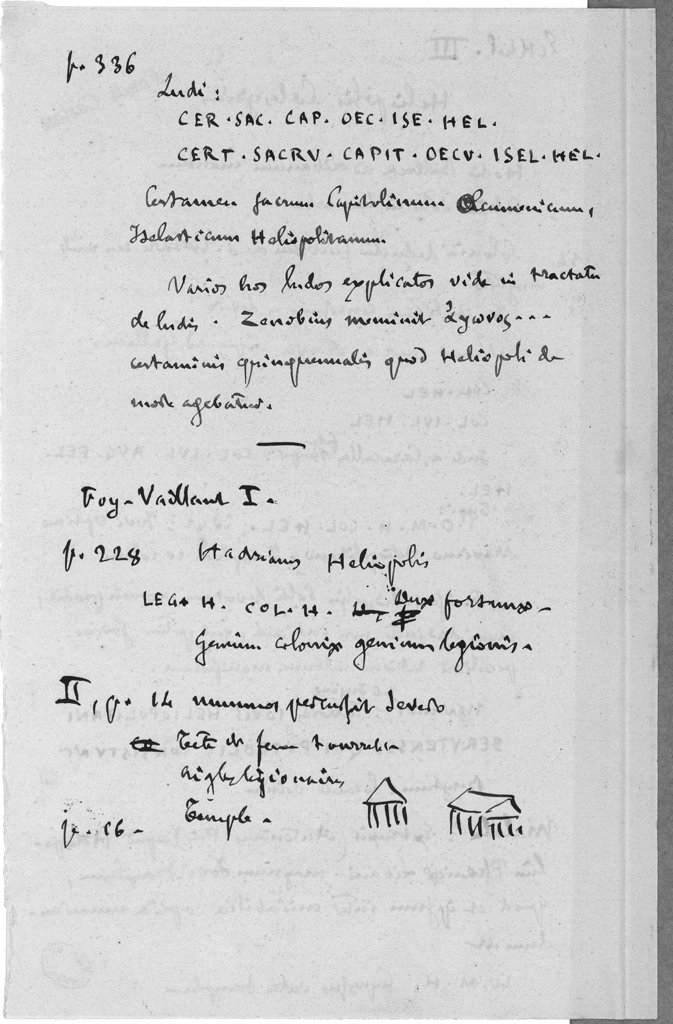 p. 336
Ludi :
CER · SAC. CAP. OEC · ISE · HEL.
CERT · SACRV · CAPIT · OECV · ISEL · HEL.
Certamen sacrum Capitolinum Œcumenicum,
Iselasticum Heliopolitanum.
Varios hos ludos explicatos vide in tractatu
de ludis. Zenobius meminit ἀγωνος...
certaminis quinquennalis quod Heliopoli de
more agebatur.
Foy-Vaillant I.
p. 228 Hadrianus Heliopolis
LEG. H. COL. H. Duæ fortunæ -
Genium coloniæ genium legionis.
II, p. 14 nummos percussit Severo
Tête de femme tourrelée
aigles légionnaires
p. 16 - Temple -